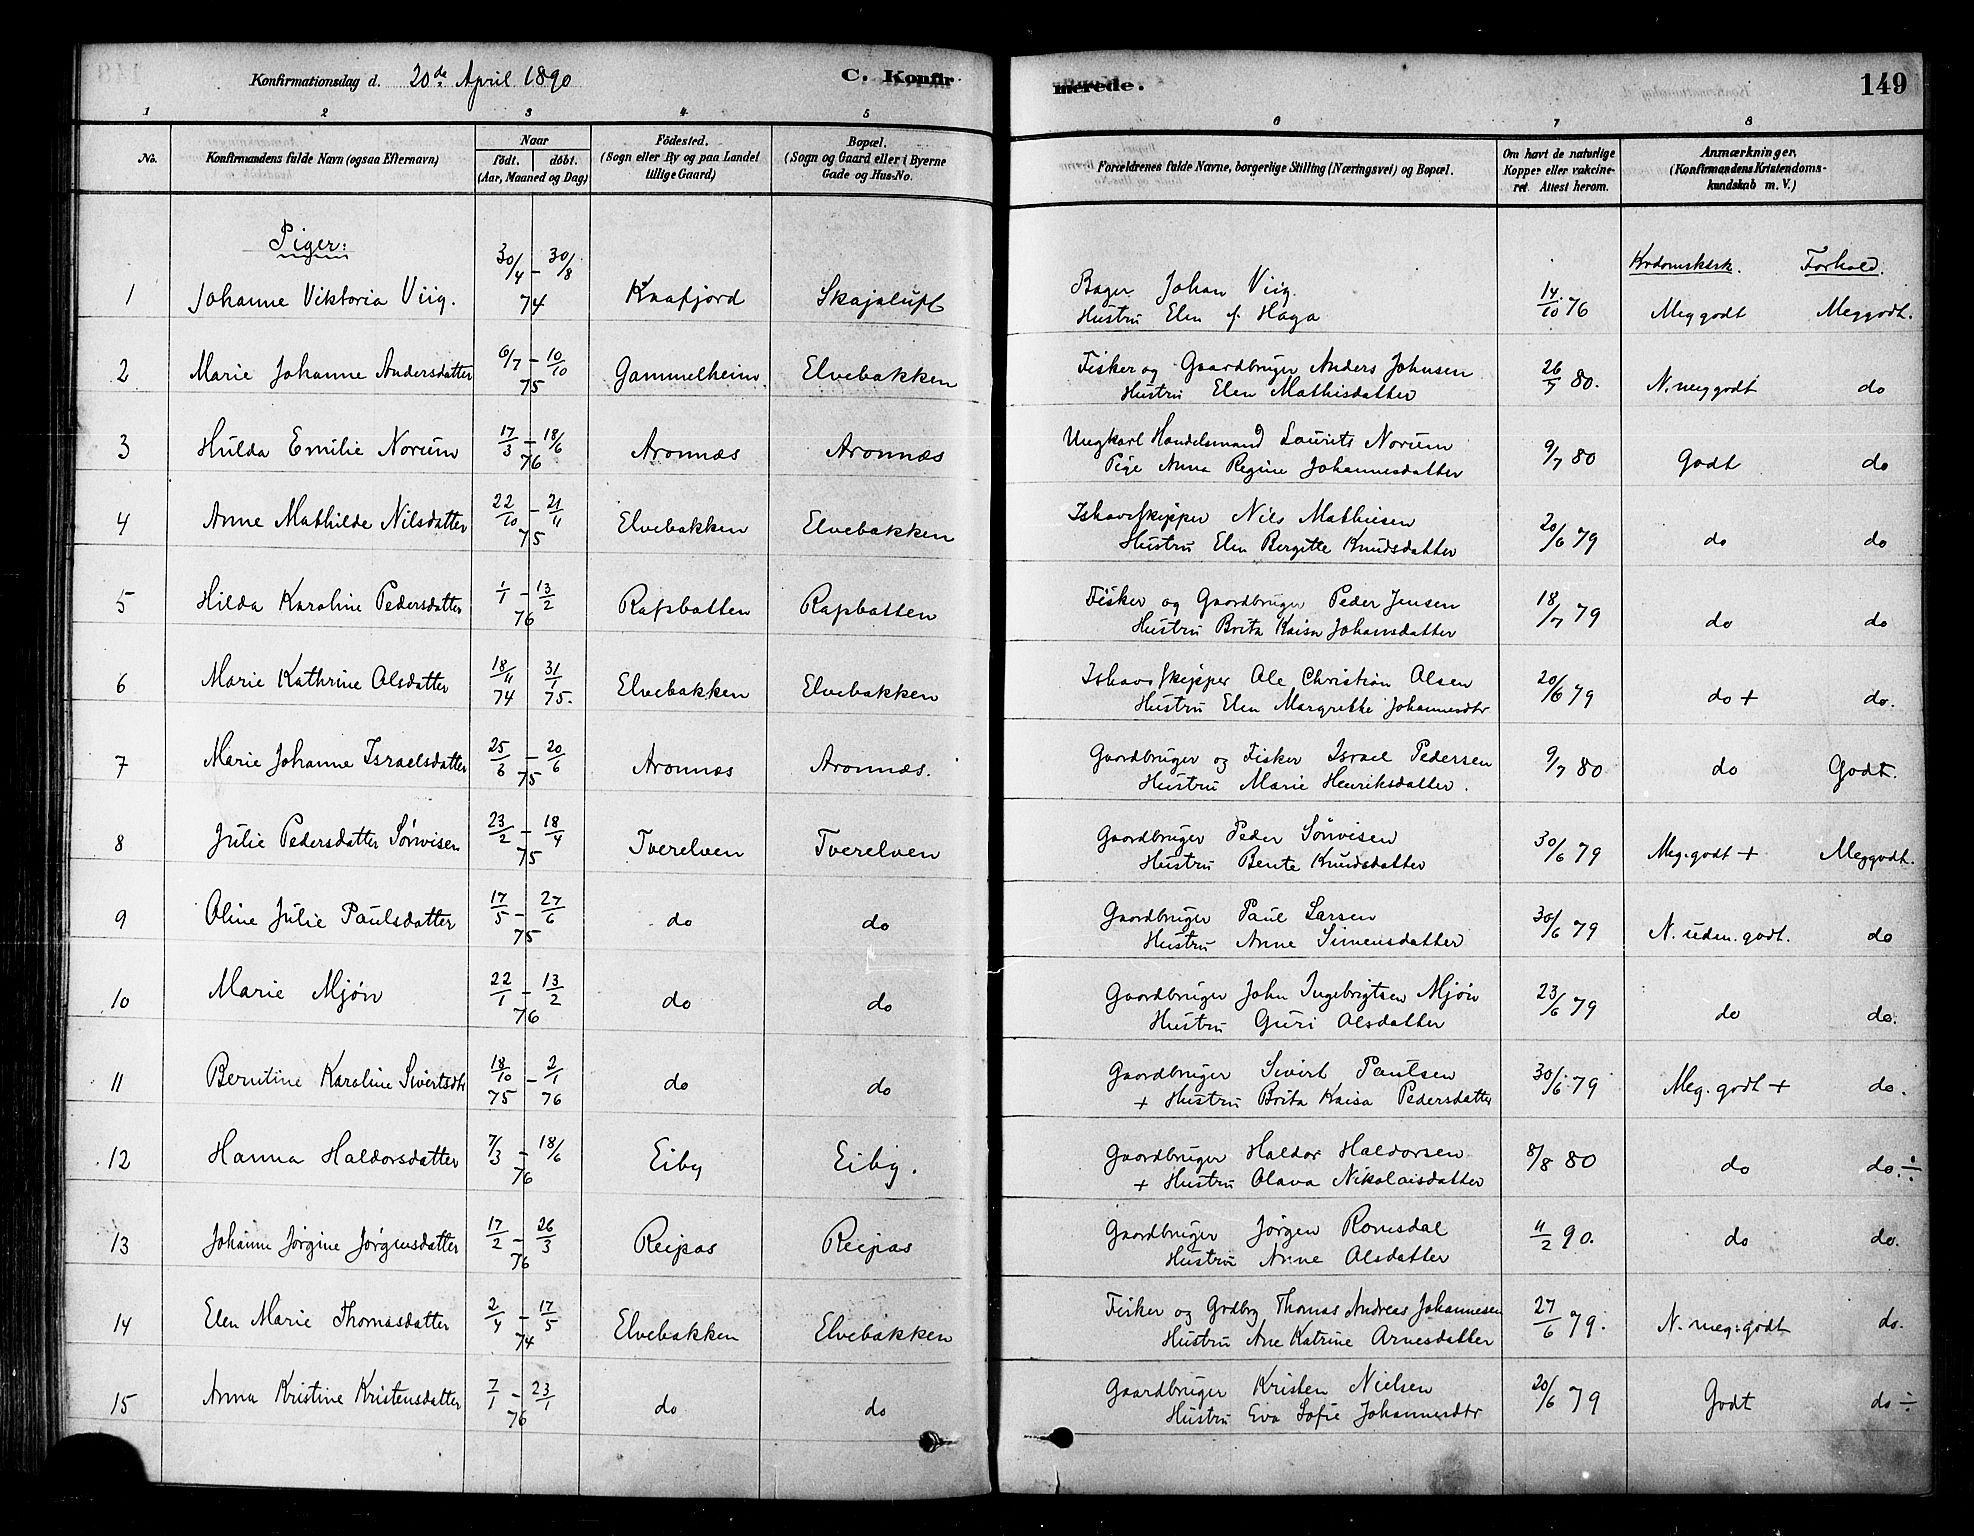 Konfirmationsdag d. 20de April 1890 C. Konfirmerede. 149
1 2 3 4 5 6 7 8
No. Konfirmandens fulde Navn (ogsaa Efternavn) Naar født. døbt. (Aar, Maaned og Dag) Fødested. (Sogn eller By og paa Landet tillige Gaard) Bopæl. (Sogn og Gaard eller i Byerne Gade og Hus-No. Forældrenes fulde Navne, borgerlige Stilling (Næringsvei) og Bopæl. Om havt de naturlige Kopper eller vakcineret. Attest herom. Anmærkninger. (Konfirmandens Kristendomskundskab m. V.)
Piger: Krdomsksk. Forhold.
1 Johanne Viktoria Viig. 30/4 – 30/8 74 Kaafjord Skajaluft Bager Johan Viig.
Hustru Elen f. Haga 14/10 76 Meg godt Meg godt.
2 Marie Johanne Andersdatter 6/7 – 10/10 75 Gammelheim. Elvebakken Fisker og Gaardbruger Anders Johnsen
Hustru Elen Mathisdatter 26/7 80. N. meg godt do
3 Hulda Emilie Norum 17/3 – 18/6 76 Aronnæs Aronnæs Ungkarl Handelsmand Laurits Norum
Pige Anna Regine Johannesdatter 9/7 80 Godt do
4 Anne Mathilde Nilsdatter 22/10 – 21/11 75 Elvebakken Elvebakken Ishavsskipper Nils Mathiesen
Hustru Elen Bergitte Knudsdatter 20/6 79 do do
5 Hilda Karoline Pedersdatter 1/1 – 13/2 76 Rafsbotten Rafsbotten Fisker og Gaardbruger Peder Jensen
Hustru Brita Kaisa Johansdatter 18/7 79 do do
6 Marie Kathrine Olsdatter 18/11 74 31/1 75. Elvebakken Elvebakken Ishavsskipper Ole Christian Olsen
Hustru Elen Margrethe Johannesdtr 20/6 79 do + do.
7 Marie Johanne Israelsdatter 25/3 – 20/6 75 Aronnæs Aronnæs. Gaardbruger og Fisker Israel Pedersen
Hustru Marie Henriksdatter. 9/7 80 do Godt.
8 Julie Pedersdatter Sønvisen 23/2 – 18/4 75 Tverelven Tverelven Gaardbruger Peder Sønvisen
Hustru Bente Knudsdatter 30/6 79 Meg. godt + Meg godt.
9 Oline Julie Paulsdatter 17/5 – 27/6 75 do do Gaardbruger Paul Larsen
Hustru Anne Simensdatter 30/6 79 N. uden. godt. do
10 Marie Mjøn 22/1 – 13/2 76 do do Gaardbruger John Ingebrigtsen Mjøn
Hustru Guri Olsdatter 23/6 79 do do.
11 Berntine Karoline Sivertsdtr 18/10 75 – 2/1 76 do do Gaardbruger Sivert Paulsen
+ Hustru Brita Kaisa Pedersdatter 30/6 79 Meg. godt + do.
12 Hanna Haldorsdatter 7/3 – 18/6 76 Eiby Eiby. Gaardbruger Haldor Haldorsen
+ Hustru Olava Nikolaisdatter 8/8 80 do do. ÷
13 Johanne Jørgine Jørgensdatter 17/2 – 26/3 76 Reipas Reipas Gaardbruger Jørgen Romsdal
Hustru Anne Olsdatter 11/2 90. do do.
14 Elen Marie Thomasdatter 2/4 – 17/5 74 Elvebakken Elvebakken Fisker og Grdbrg Thomas Andreas Johannesen
Hustru Ane Katrine Arnesdatter 27/6 79. N. meg. godt do.
15 Anna Kristine Kristensdatter 7/1 – 23/1 76 do do Gaardbruger Kristen Nielsen
Hustru Eva Sofie Johannesdtr 20/6 79 Godt do ÷